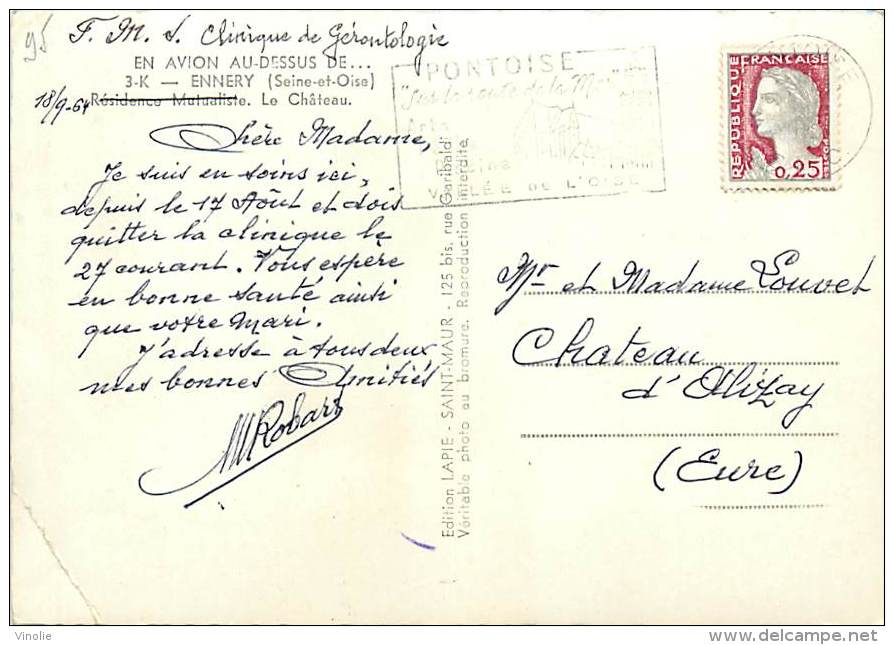 95
F. M. S. Clinique de Gérontologie
EN AVION AU-DESSUS DE...
3-K — ENNERY (Seine-et-Oise)
18/9-64 Résidence Mutualiste. Le Château.
Chère Madame,
Je suis en soins ici,
depuis le 17 Août et dois
quitter la clinique le
27 courant. Vous espère
en bonne santé ainsi
que votre Mari.
J'adresse à tous deux
mes bonnes Amitiés
MRobart
Edition LAPIE - SAINT-MAUR - 125 bis, rue Garibaldi
Véritable photo au bromure. Reproduction interdite
PONTOISE
VALLÉE DE L'OISE
REPUBLIQUE FRANÇAISE
0,25
Mr et Madame Louvet
Chateau
d'Alizay
(Eure)
Vinolie
www.delcampe.net